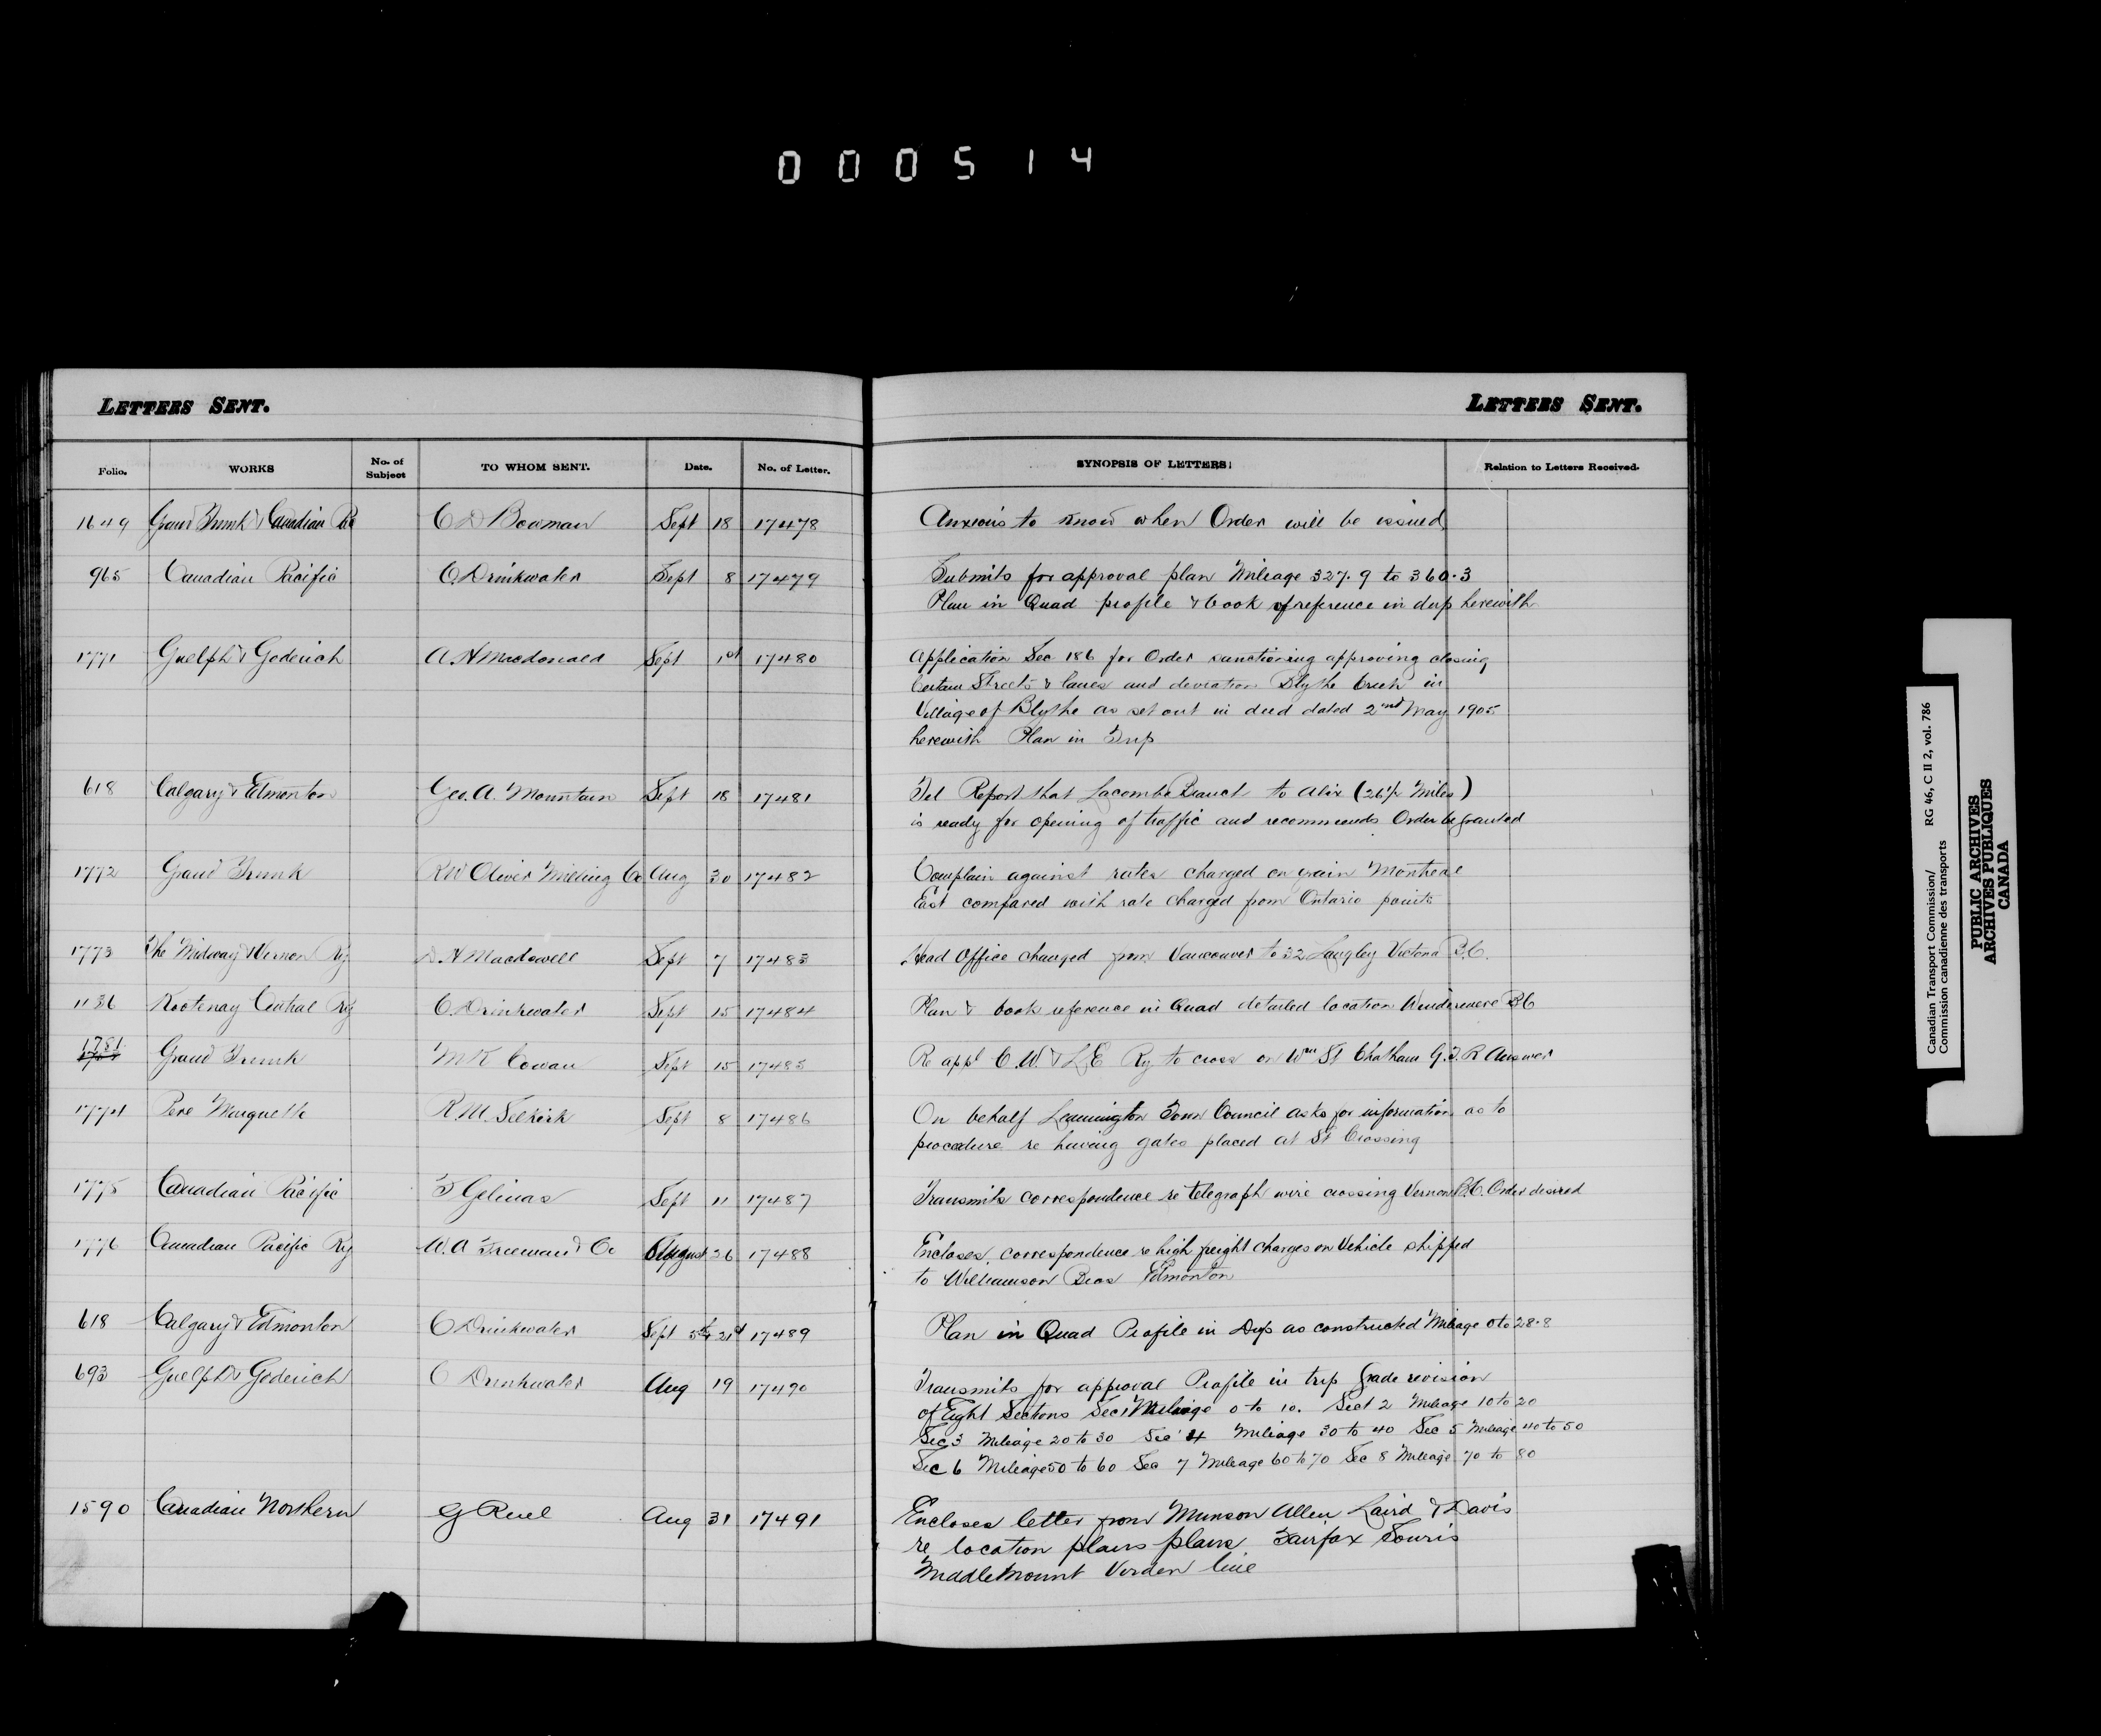 000514
LETTERS SENT.
LETTERS SENT.
Folio. WORKS No. of Subject TO WHOM SENT. Date. No. of Letter. SYNOPSIS OF LETTERS. Relation to Letters Received.
1649 Grand Trunk & Canadian Pac C D Bowman Sept 18 17478 Anxious to know when Order will be issued
965 Canadian Pacific C. Drinkwater Sept 8 17479 Submits for approval plan Mileage 327.9 to 360.3
Plan in Quad profile & book of reference in dup herewith
1771 Guelph & Goderich A H Macdonald Sept 1st 17480 Application Sec 186 for Order sanctioning approving closing
Certain Streets & lanes and deviation Blythe Creek in
Village of Blythe as set out in deed dated 2nd May 1905
herewith Plan in Trip
618 Calgary & Edmonton Geo. A. Mountain Sept 18 17481 Tel Report that Lacombe Branch to Alix (26½ Miles)
is ready for opening of traffic and recommends Order be granted
1772 Grand Trunk R W Oliver Milling Co Aug 30 17482 Complain against rates charged on grain Montreal
East compared with rate charged from Ontario points
1773 The Midway & Vernon Ry D H Macdowell Sept 7 17483 Head Office changed from Vancouver to 32 Langley Victoria B.C.
1136 Kootenay Central Ry C. Drinkwater Sept 15 17484 Plan & book reference in Quad detailed location Windermere B C
1781 Grand Trunk M K Cowan Sept 15 17485 Re appl C. W. & L E Ry to cross on Wm St Chatham G. T. R Answer
1774 Pere Marquette R. M. Selkirk Sept 8 17486 On behalf Leamington Town Council asks for information as to
procedure re having gates placed at St Crossing
1775 Canadian Pacific F Gelinas Sept 11 17487 Transmits correspondence re telegraph wire crossing Vernon B.C. Order desired
1776 Canadian Pacific Ry W. A Freeman & Co August 26 17488 Encloses correspondence re high freight charges on Vehicle shipped
to Williamson Bros Edmonton
618 Calgary & Edmonton C Drinkwater Sept 5th 21st 17489 Plan in Quad Profile in Dup as constructed Mileage 0 to 28.8
693 Guelph & Goderich C Drinkwater Aug 19 17490 Transmits for approval Profile in trip Grade revision
of Eight Sections Sec 1 Mileage 0 to 10. Sect 2 Mileage 10 to 20
Sec 3 Mileage 20 to 30 Sec 4 Mileage 30 to 40 Sec 5 Mileage 40 to 50
Sec 6 Mileage 50 to 60 Sec 7 Mileage 60 to 70 Sec 8 Mileage 70 to 80
1590 Canadian Northern G Ruel Aug 31 17491 Encloses letter from Munson Allen Laird & Davis
re location plans plans Fairfax Souris
Middlemount Virden line
Canadian Transport Commission/ RG 46, C II 2, vol. 786
Commission canadienne des transports
PUBLIC ARCHIVES
ARCHIVES PUBLIQUES
CANADA